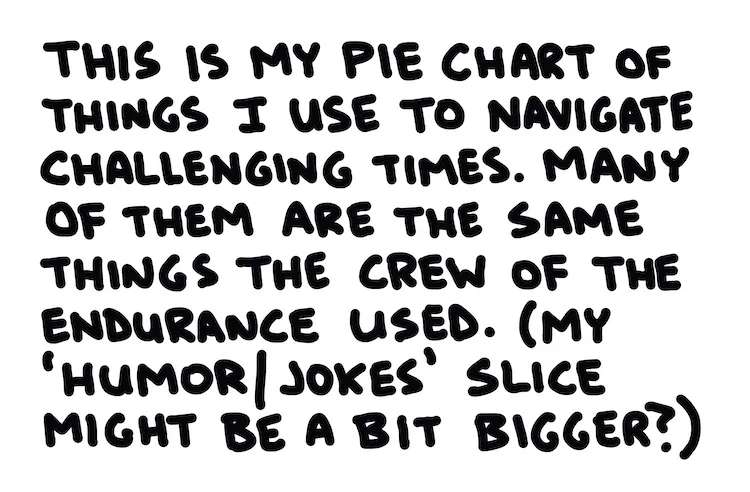 THIS IS MY PIE CHART OF
THINGS I USE TO NAVIGATE
CHALLENGING TIMES. MANY
OF THEM ARE THE SAME
THINGS THE CREW OF THE
ENDURANCE USED. (MY
'HUMOR/JOKES' SLICE
MIGHT BE A BIT BIGGER?)